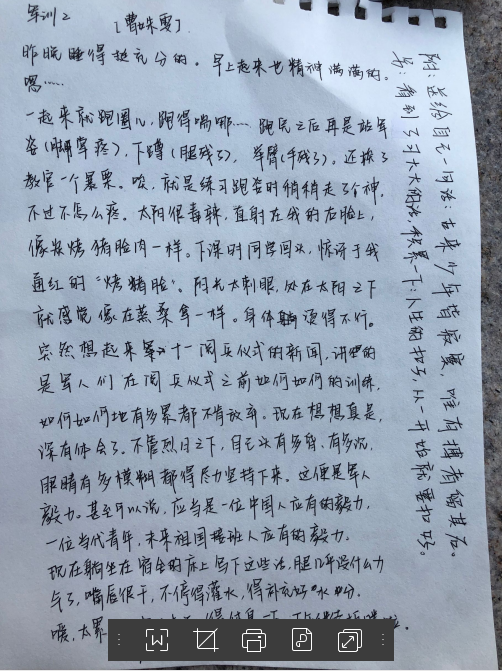 军训2
[曹姝雯]
昨晚睡得挺充分的。早上起来也精神满满的。
嗯……
一起来就跑圈儿,跑得喘哪……跑完之后再是站军
姿(脚掌疼),下蹲(腿残了),举臂(手残了)。还挨了
教官一个暴栗。唉,就是练习跑姿时稍稍走了个神,
不过不怎么疼。太阳很毒辣,直射在我的右脸上,
像炭烤猪脸肉一样。下课时同学回头,惊讶于我
通红的“烤猪脸”。阳光太刺眼,处在太阳之下
就感觉像在蒸桑拿一样。身体躺烫得不行。
突然想起来 十一阅兵仪式的新闻,讲的
是军人们在阅兵仪式之前如何如何的训练,
如何如何地有多累都不肯放弃。现在想想真是,
深有体会了。不管烈日之下,自己头有多昏、有多沉,
眼睛有多模糊都得尽力坚持下来。这便是军人
毅力。甚至可以说,应当是一位中国人应有的毅力,
一位当代青年,未来祖国接班人应有的毅力。
现在躺坐在宿舍的床上写下这些话,腿几乎没什么力
气了,嘴唇很干,不停得灌水,得补充好水分。
嗳,太累
附:送给自己一句话:古来少年皆寂寞,唯有搏者留其后。
另:看到了习大大的话,积累一下:人生的扣子,从一开始就要扣好。